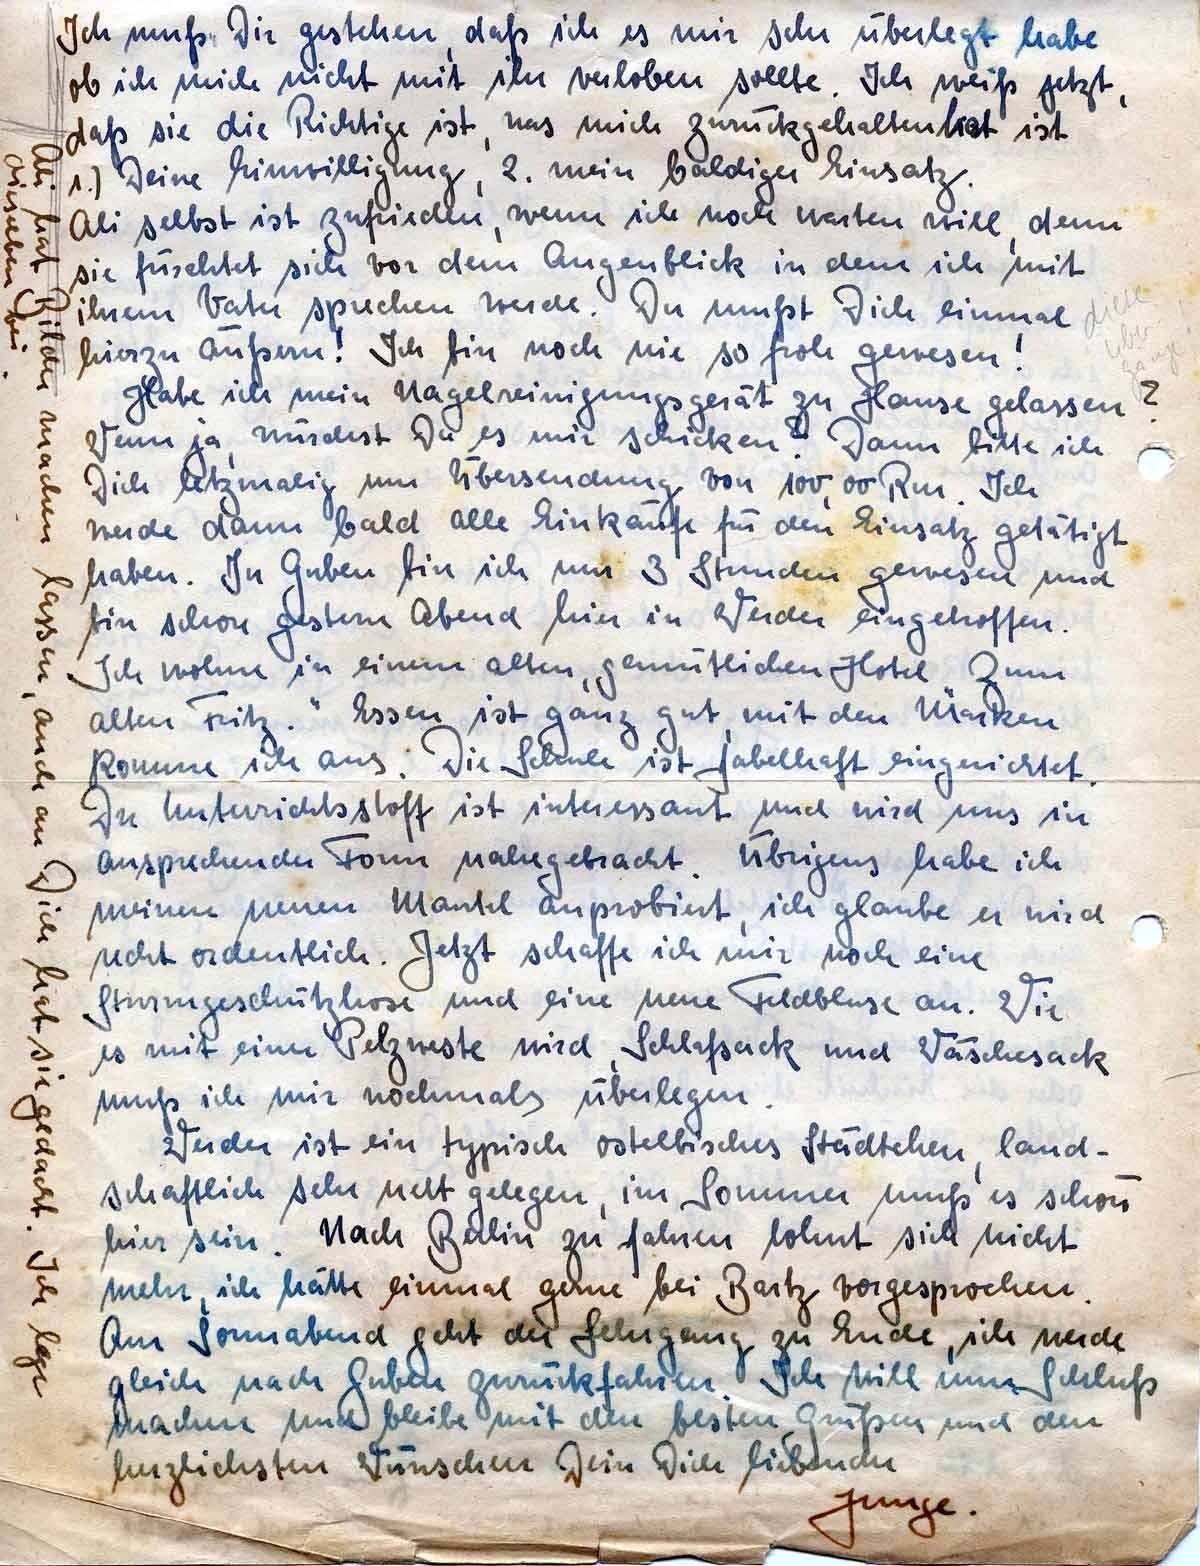 Ich muß Dir gestehen, daß ich es mir sehr überlegt habe
ob ich mich nicht mit ihr verloben sollte. Ich weiß jetzt,
daß sie die Richtige ist, was mich zurückgehalten hat ist
1.) Deine Einwilligung, 2. mein baldiger Einsatz.
Ali selbst ist zufrieden, wenn ich noch warten will, denn
sie fürchtet sich vor dem Augenblick in dem ich mit
ihrem Vater sprechen werde. Du mußt Dich einmal
hierzu äußern! Ich bin noch nie so froh gewesen!
Habe ich mein Nagelreinigungsgerät zu Hause gelassen?
Wenn ja, würdest Du es mir schicken? Dann bitte ich
Dich letzmalig um Übersendung von 100,00 Rm. Ich
werde dann bald alle Einkäufe für den Einsatz getätigt
haben. In Guben bin ich nur 3 Stunden gewesen und
bin schon gestern Abend hier in Werder eingetroffen.
Ich wohne in einem alten, gemütlichen Hotel „Zum
alten Fritz." Essen ist ganz gut, mit den Marken
komme ich aus. Die Schule ist fabelhaft eingerichtet.
Der Unterrichtsstoff ist interessant und wird uns in
ansprechender Form nahegebracht. Übrigens habe ich
meinen neuen Mantel anprobiert, ich glaube er wird
recht ordentlich. Jetzt schaffe ich mir noch eine
Sturmgeschützhose und eine neue Feldbluse an. Wie
es mit einer Pelzweste wird, Schlafsack und Wäschesack
muß ich mir nochmals überlegen.
Werder ist ein typisch ostelbisches Städtchen, land-
schaftlich sehr nett gelegen, im Sommer muß es schön
hier sein. Nach Berlin zu fahren lohnt sich nicht
mehr, ich hätte einmal gerne bei Bartz vorgesprochen.
Am Sonnabend geht der Lehrgang zu Ende, ich werde
gleich nach Guben zurückfahren. Ich will nun Schluß
machen und bleibe mit den besten Grüßen und den
herzlichsten Wünschen Dein Dich liebender
Junge.
Ali hat Bilder machen lassen, auch an Dich hat sie gedacht. Ich lege
dieselben bei.
diese
über